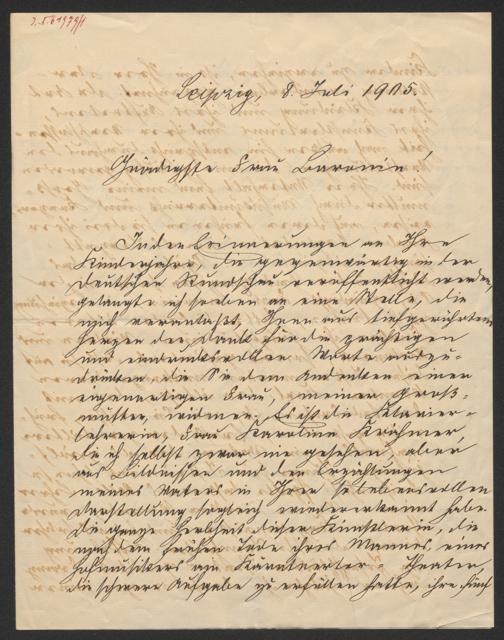 Leipzig, 8. Juli 1905.
Gnädigste Frau Baronin!
In den Erinnerungen an Ihre
Kinderjahre, die gegenwärtig in der
Deutschen Rundschau veröffentlicht werden,
gelangte ich soeben an eine Stelle, die
mich veranlaßt, Ihnen aus tiefgerührtem
Herzen den Dank für die prächtigen
und eindrucksvollen Worte auszu-
drücken die Sie dem Andenken einer
eigenartigen Frau, meiner Groß-
mutter, widmen. Es ist die Klavier-
lehrerin, Frau Karoline Krähmer,
die ich selbst zwar nie gesehen, aber
aus Bildnissen und den Erzählungen
meines Vaters in Ihrer so lebensvollen
Darstellung sogleich wiedererkannt habe.
Die ganze Herbheit dieser Künstlerin, die
nach dem frühen Tode ihres Mannes, eines
Hofmusikers am Kärntnerthor-Theater,
die schwere Aufgabe zu erfüllen hatte, ihre fünf